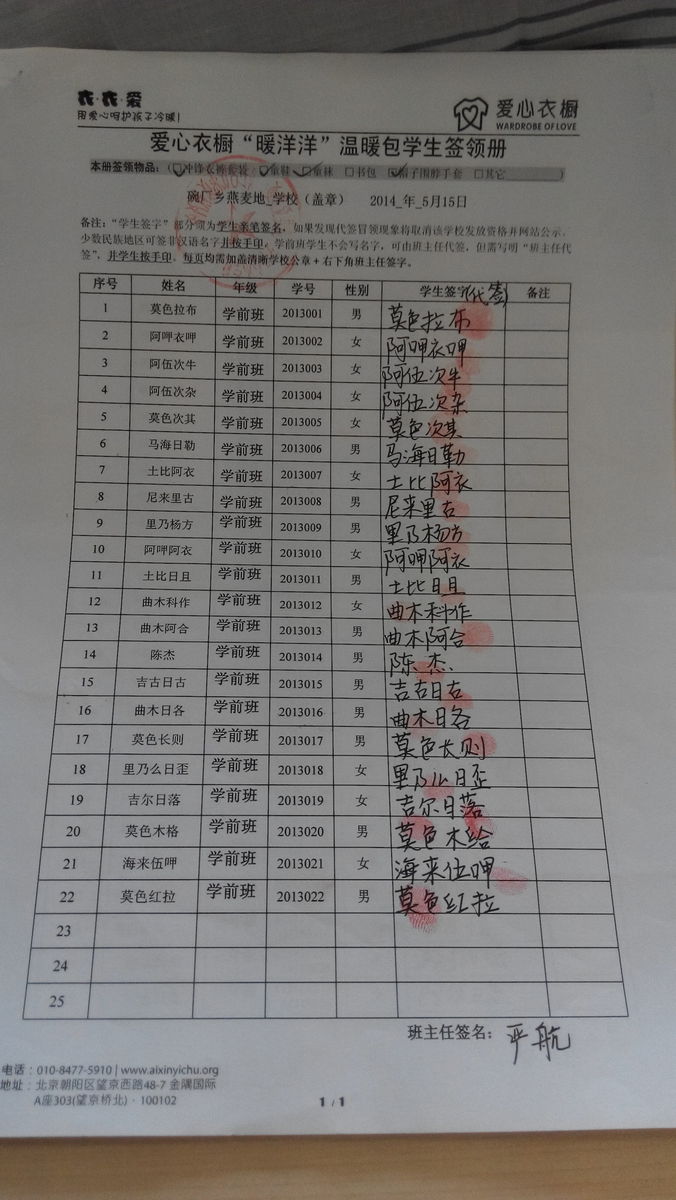 衣·衣·爱
用爱心呵护孩子冷暖!
爱心衣橱
WARDROBE OF LOVE
爱心衣橱“暖洋洋”温暖包学生签领册
本册签领物品：（☑冲锋衣裤套装 ☑童鞋 ☑童袜 □书包 ☑帽子围脖手套 □其它 ）
碗厂乡燕麦地_学校（盖章） 2014_年_5月15日
备注：“学生签字”部分须为学生亲笔签名，如果发现代签冒领现象将取消该学校发放资格并网站公示。
少数民族地区可签非汉语名字并按手印，学前班学生不会写名字，可由班主任代签，但需写明“班主任代
签”，并学生按手印。每页均需加盖清晰学校公章+右下角班主任签字。
序号 姓名 年级 学号 性别 学生签字(代签) 备注
1 莫色拉布 学前班 2013001 男 莫色拉布
2 阿呷衣呷 学前班 2013002 女 阿呷衣呷
3 阿伍次牛 学前班 2013003 女 阿伍次牛
4 阿伍次杂 学前班 2013004 女 阿伍次杂
5 莫色次其 学前班 2013005 女 莫色次其
6 马海日勒 学前班 2013006 男 马海日勒
7 土比阿衣 学前班 2013007 女 土比阿衣
8 尼来里古 学前班 2013008 男 尼来里古
9 里乃杨方 学前班 2013009 男 里乃杨方
10 阿呷阿衣 学前班 2013010 女 阿呷阿衣
11 土比日且 学前班 2013011 男 土比日且
12 曲木科作 学前班 2013012 女 曲木科作
13 曲木阿合 学前班 2013013 男 曲木阿合
14 陈杰 学前班 2013014 男 陈杰
15 吉古日古 学前班 2013015 男 吉古日古
16 曲木日各 学前班 2013016 男 曲木日各
17 莫色长则 学前班 2013017 男 莫色长则
18 里乃么日歪 学前班 2013018 女 里乃么日歪
19 吉尔日落 学前班 2013019 女 吉尔日落
20 莫色木格 学前班 2013020 男 莫色木给
21 海来伍呷 学前班 2013021 女 海来伍呷
22 莫色红拉 学前班 2013022 男 莫色红拉
23
24
25
班主任签名：严航
电话：010-8477-5910 | www.aixinyichu.org
地址：北京朝阳区望京西路48-7 金隅国际
A座303(望京桥北)·100102
1 / 1